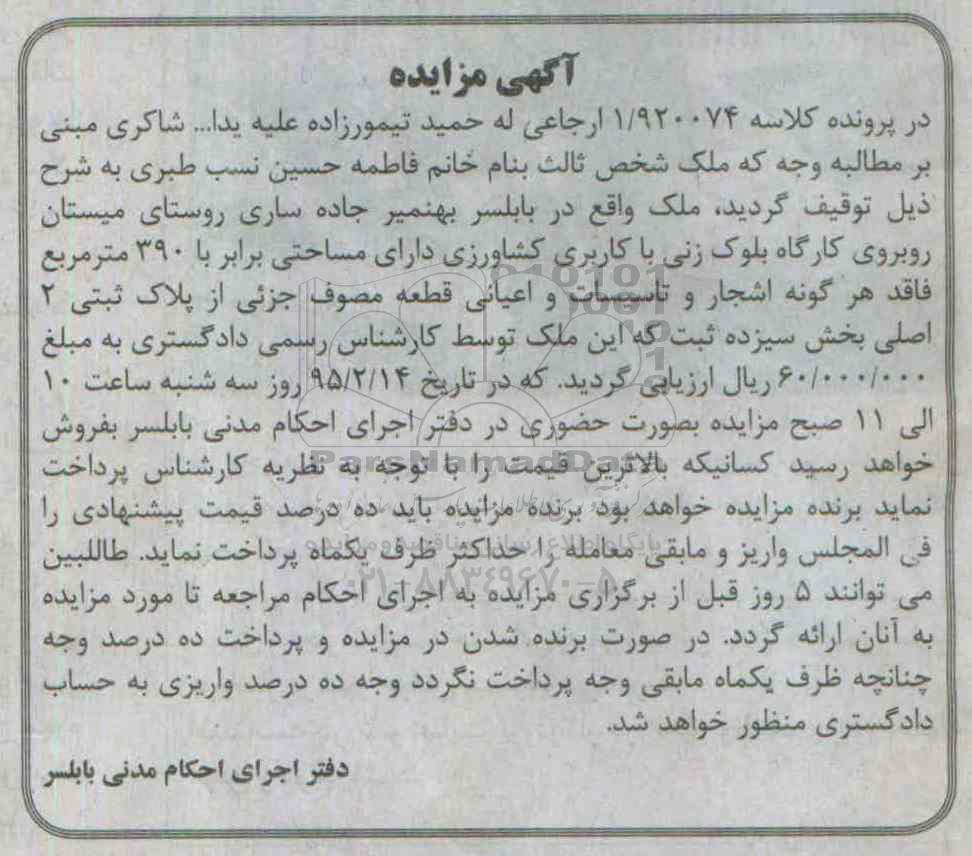 آگهی مزایده
در پرونده کلاسه ۱/۹۲۰۰۷۴ ارجاعی له حمید تیمورزاده علیه یدا... شاکری مبنی
بر مطالبه وجه که ملک شخص ثالث بنام خانم فاطمه حسین نسب طبری به شرح
ذیل توقیف گردید، ملک واقع در بابلسر بهنمیر جاده ساری روستای میستان
روبروی کارگاه بلوک زنی با کاربری کشاورزی دارای مساحتی برابر با ۳۹۰ مترمربع
فاقد هر گونه اشجار و تأسیسات و اعیانی قطعه مصوف جزئی از پلاک ثبتی ۲
اصلی بخش سیزده ثبت که این ملک توسط کارشناس رسمی دادگستری به مبلغ
۶۰/۰۰۰/۰۰۰ ریال ارزیابی گردید. که در تاریخ ۹۵/۲/۱۴ روز سه شنبه ساعت ۱۰
الی ۱۱ صبح مزایده بصورت حضوری در دفتر اجرای احکام مدنی بابلسر بفروش
خواهد رسید کسانیکه بالاترین قیمت را با توجه به نظریه کارشناس پرداخت
نماید برنده مزایده خواهد بود برنده مزایده باید ده درصد قیمت پیشنهادی را
فی المجلس واریز و مابقی معامله را حداکثر ظرف یکماه پرداخت نماید. طاللبین
می توانند ۵ روز قبل از برگزاری مزایده به اجرای احکام مراجعه تا مورد مزایده
به آنان ارائه گردد. در صورت برنده شدن در مزایده و پرداخت ده درصد وجه
چنانچه ظرف یکماه مابقی وجه پرداخت نگردد وجه ده درصد واریزی به حساب
دادگستری منظور خواهد شد.
دفتر اجرای احکام مدنی بابلسر
ParsNamadData
۰۲۱-۸۸۳۴۹۶۷۰-۵